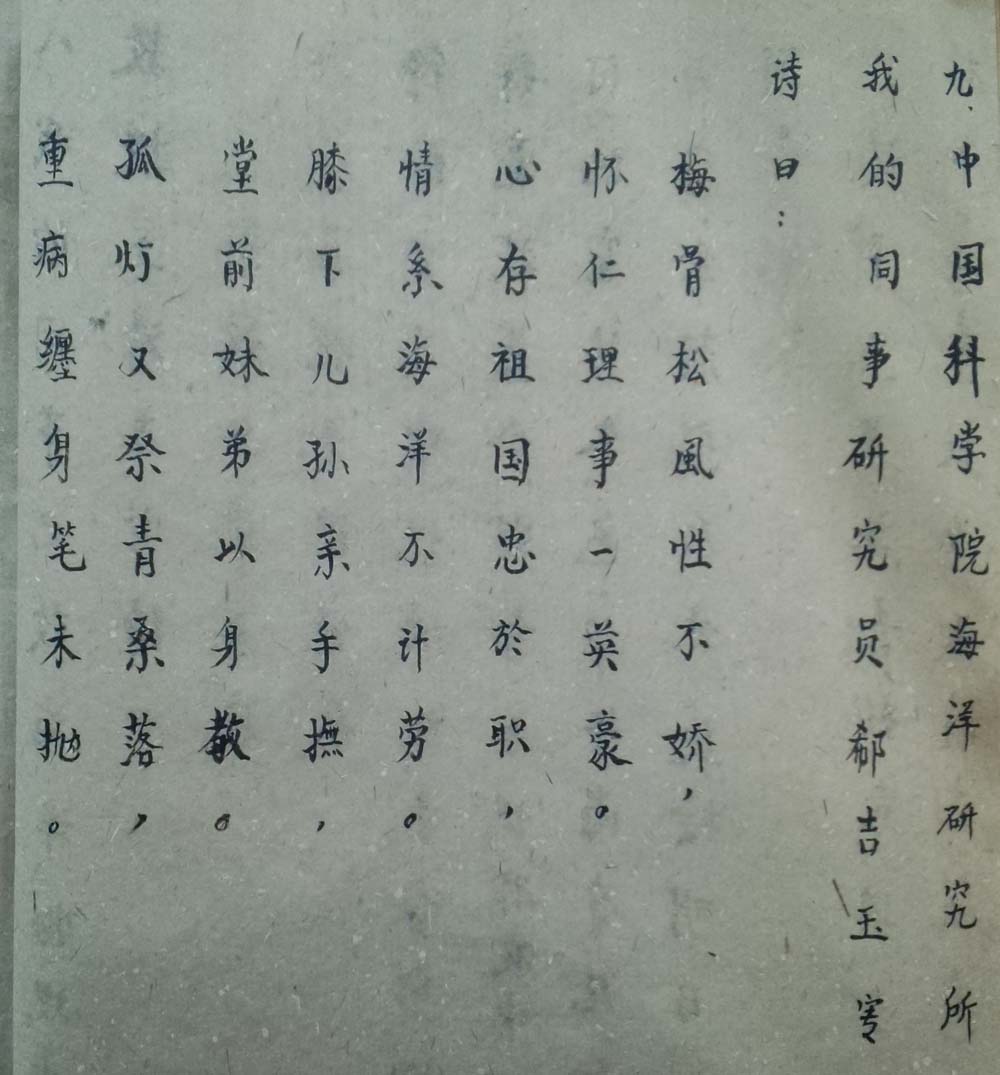 九、中国科学院海洋研究所
我的同事研究员郗吉玉写
诗曰：
梅骨松風性不娇，
怀仁理事一英豪。
心存祖国忠於职，
情系海洋不计劳。
膝下儿孙亲手撫，
堂前妹弟以身教。
孤灯又祭青桑落，
重病纏身笔未抛。